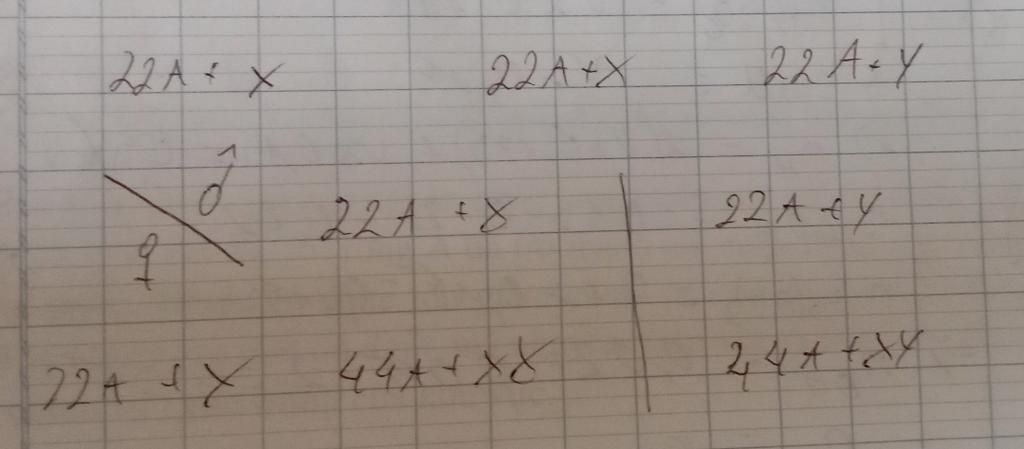 22A + X 22A+X 22A+Y
♂ 22A + X 22A+Y
♀
22A + X 44A+XX 44A+XY